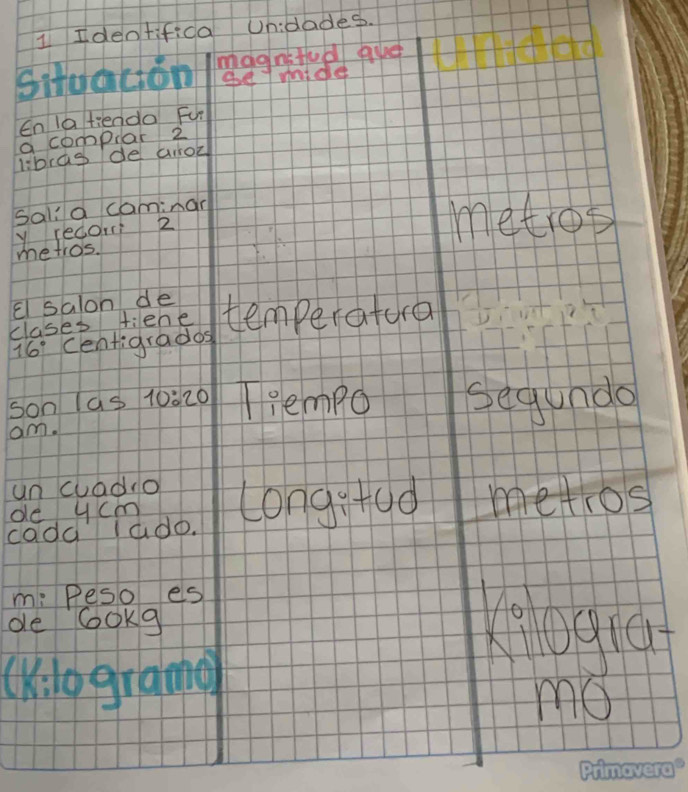 1 Identifica Unidades.
Situación magnitud que se mide Unidad
En la tienda Fui
a comprar 2
libras de arroz
Sali a caminar
y recorri 2
metros.
metros
El salon de
clases tiene
16° centigrados
temperatura
son las 10:20
am.
Tiempo
segundo
un cuadro
de 4cm
cada lado.
Longitud
metros
mi Peso es
de 60kg
(Kilogramo)
Kilogra-
mo
Primavera